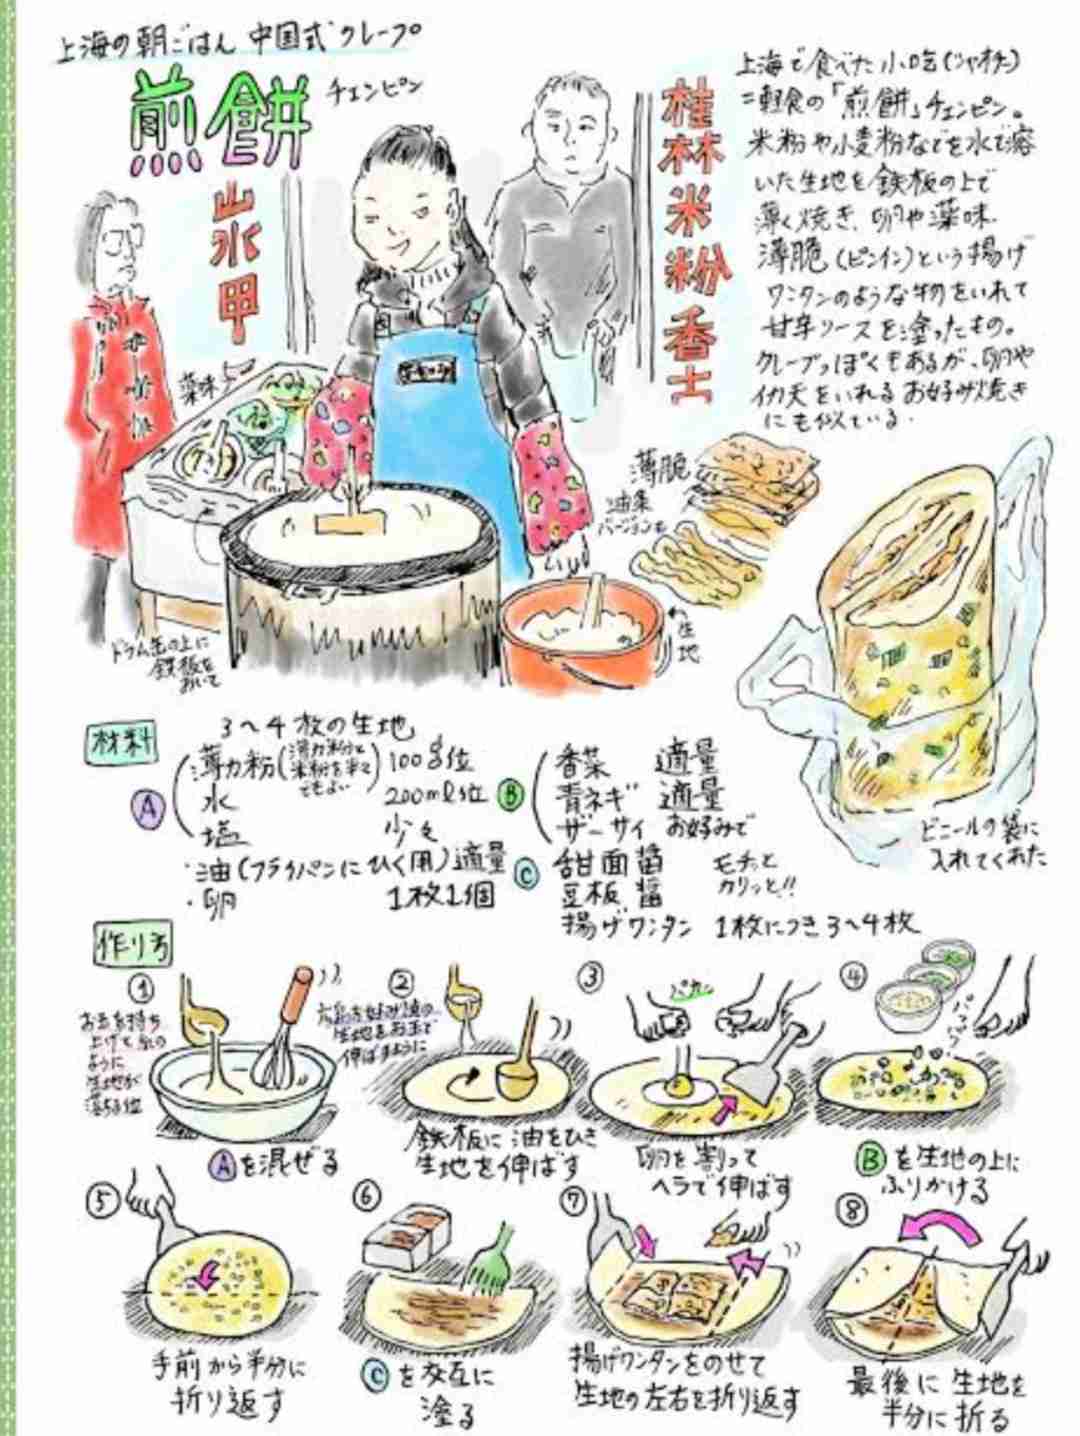 上海の朝ごはん 中国式クレープ
煎餅 チェンピン
桂林米粉香士
上海で食べた小吃(シャオチー)
=軽食の「煎餅」チェンピン。
米粉や小麦粉などを水で溶
いた生地を鉄板の上で
薄く焼き、卵や薬味
薄脆(ピンイン)という揚げ
ワンタンのような物をいれて
甘辛ソースを塗ったもの。
クレープっぽくもあるが、卵や
イカ天をいれるお好み焼き
にも似ている。
薬味
薄脆
油条
バージョンも
←生地
ドラム缶の上に
鉄板を
おいて
ビニールの袋に
入れてくれた
材料
3〜4枚の生地
A
薄力粉(薄力粉と米粉を半々でもよい) 100g位
水 200ml位
塩 少々
・油(フライパンにひく用) 適量
・卵 1枚1個
B
香菜 適量
青ネギ 適量
ザーサイ お好みで
C 甜面醤
豆板醤
モチッと
カリッと!!
揚げワンタン 1枚につき3〜4枚
作り方
①
お玉を持ち
上げと糸の
ように
生地が
落ちる位
Aを混ぜる
②
生地をお玉で
伸ばすように
鉄板に油をひき
生地を伸ばす
③
パカッ
卵を割って
ヘラで伸ばす
④
パラパラ
Bを生地の上に
ふりかける
⑤
手前から半分に
折り返す
⑥
Cを交互に
塗る
⑦
揚げワンタンをのせて
生地の左右を折り返す
⑧
最後に生地を
半分に折る